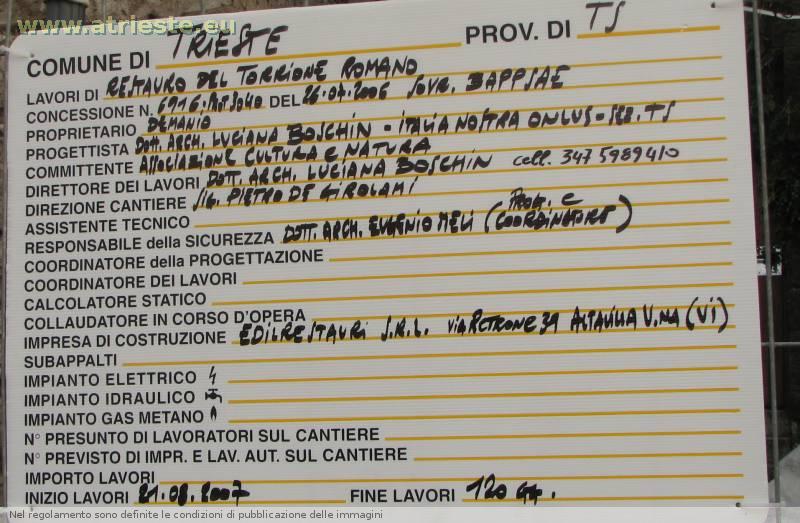 www.atrieste.eu
COMUNE DI TRIESTE PROV. DI TS
LAVORI DI RESTAURO DEL TORRIONE ROMANO
CONCESSIONE N. DEL 26.07.2006 SOVR. BAPPSAE
PROPRIETARIO DEMANIO
PROGETTISTA DOTT. ARCH. LUCIANA BOSCHIN - ITALIA NOSTRA ONLUS - SEZ. TS
COMMITTENTE ASSOCIAZIONE CULTURA E NATURA
DIRETTORE DEI LAVORI DOTT. ARCH. LUCIANA BOSCHIN cell. 347 5989410
DIREZIONE CANTIERE SIG. PIETRO DE GIROLAMI
ASSISTENTE TECNICO
RESPONSABILE della SICUREZZA DOTT. ARCH. EUGENIO MELI (PROG. E COORDINATORE)
COORDINATORE della PROGETTAZIONE
COORDINATORE DEI LAVORI
CALCOLATORE STATICO
COLLAUDATORE IN CORSO D'OPERA
IMPRESA DI COSTRUZIONE EDILRESTAURI S.R.L. VIA RETRONE 39 ALTAVILLA V.NA (VI)
SUBAPPALTI
IMPIANTO ELETTRICO
IMPIANTO IDRAULICO
IMPIANTO GAS METANO
N° PRESUNTO DI LAVORATORI SUL CANTIERE
N° PREVISTO DI IMPR. E LAV. AUT. SUL CANTIERE
IMPORTO LAVORI
INIZIO LAVORI 21.08.2007 FINE LAVORI 120 GG.
Nel regolamento sono definite le condizioni di pubblicazione delle immagini